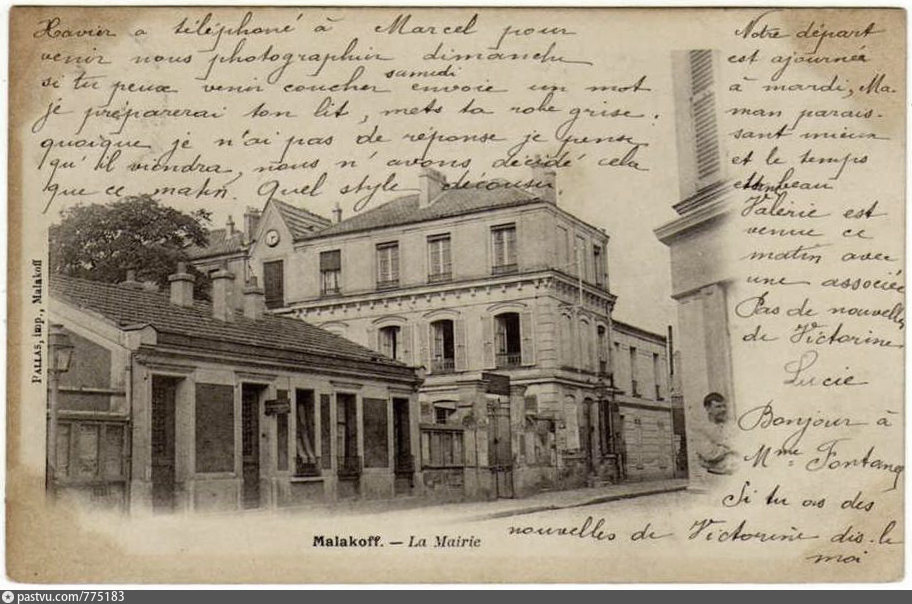 Xavier a téléphoné à Marcel pour
venir nous photographier dimanche
si tu peux venir coucher samedi envoie un mot
je préparerai ton lit, mets ta robe grise.
quoique je n'ai pas de réponse je pense
qu'il viendra, nous n'avons décidé cela
que ce matin. Quel style décousu
Notre départ
est ajournée
à mardi, Ma-
man parais-
sant mieux
et le temps
beau
Valérie est
venue ce
matin avec
une associée
Pas de nouvelles
de Victorine
Lucie
Bonjour à
Mme Fontang
Si tu as des
nouvelles de Victorine dis-le
moi
PALLAS, imp., Malakoff
Malakoff. — La Mairie
pastvu.com/775183